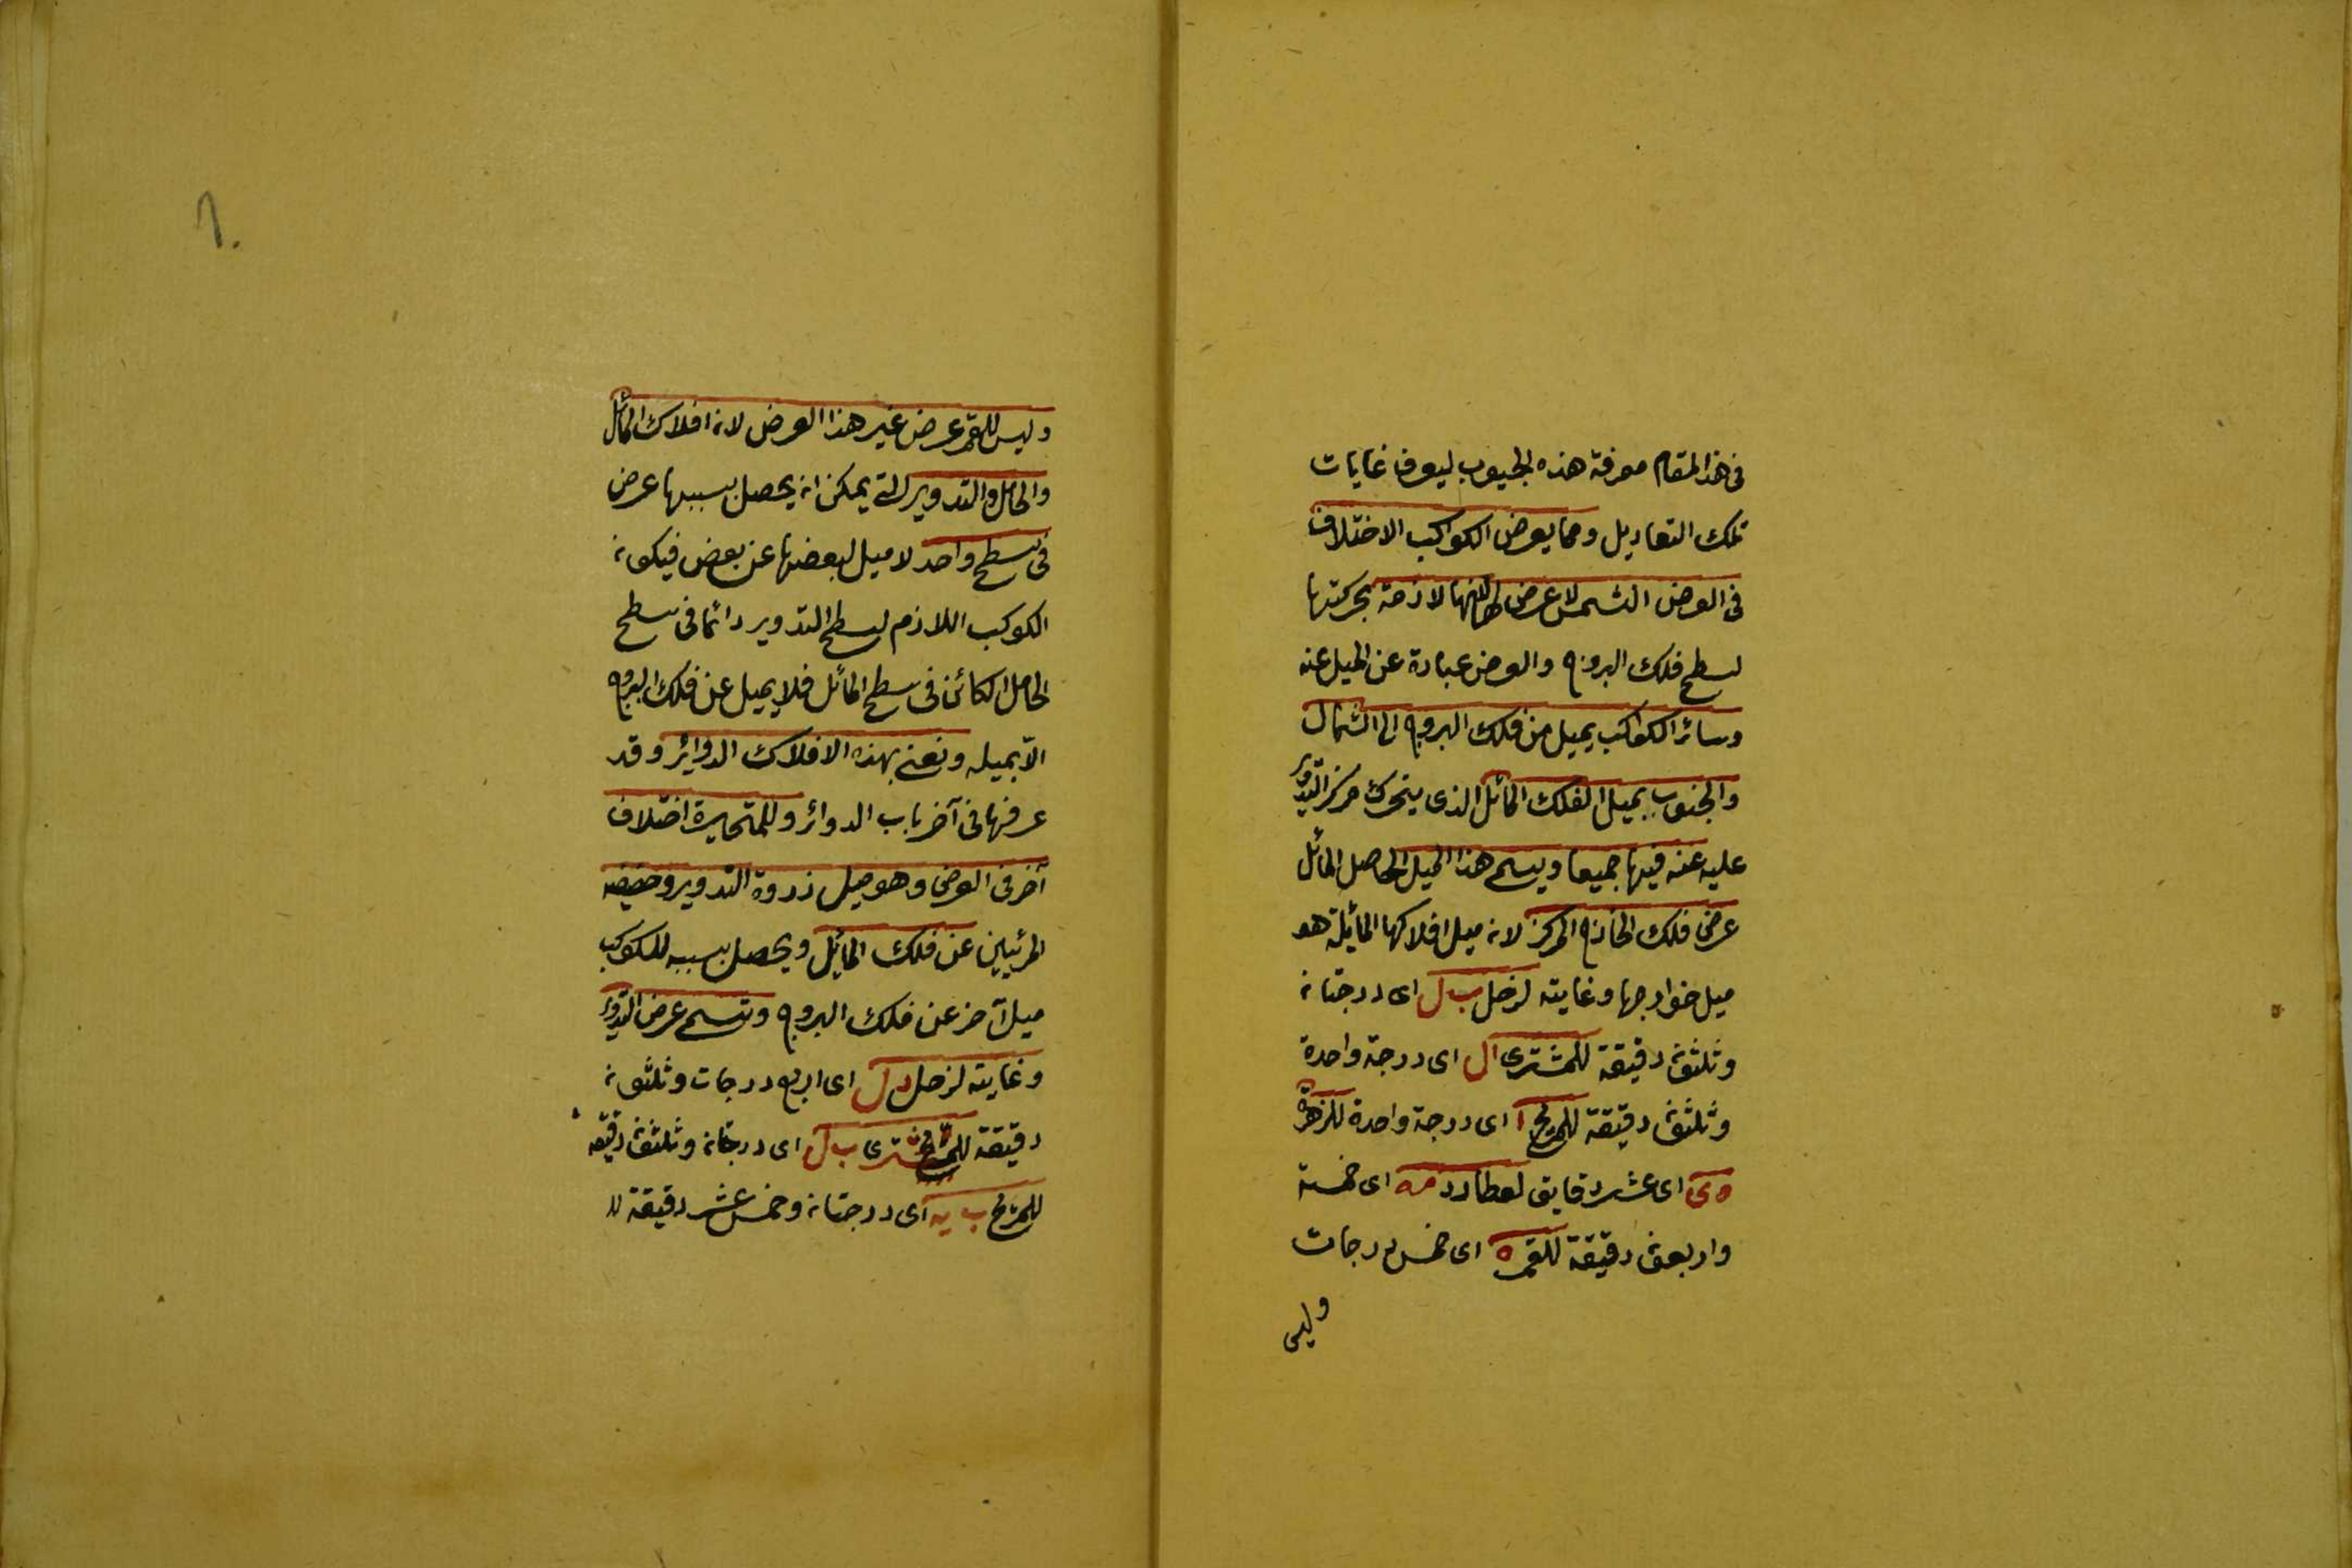 فى هذا المقام معرفة هذه الجيوب ليعرف غايات
تلك التعاديل ومما يعرض الكواكب الاختلاف
فى العرض الشمس لا عرض لها لانها لازمة بحركتها
لسطح فلك البروج والعرض عبارة عن الميل عنه
وسائر الكواكب يميل من فلك البروج الى الشمال
والجنوب بميل الفلك المائل الذى يتحرك مركز التدوير
عليه عنه فيها جميعا ويسمى هذا الميل الحاصل المائل
عرض فلك الخارج المركز لان ميل افلاكها المائلة هو
ميل خوارجها وغايته لزحل ب ل اى درجتان
وثلثون دقيقة للمشترى ا ل اى درجة واحدة
وثلثون دقيقة للمريخ ا اى درجة واحدة للزهرة
ه ى اى عشر دقايق لعطارد مه اى خمسة
واربعون دقيقة للقمر ه اى خمس درجات
وليس
٦٠
وليس للقمر عرض غير هذا العرض لان افلاك المائل
والحامل والتدوير التى يمكن ان يحصل بسببها عرض
فى سطح واحد لا ميل لبعضها عن بعض فيكون
الكوكب اللازم لسطح التدوير دائما فى سطح
الحامل الكائن فى سطح المائل فلا يميل عن فلك البروج
الا بميله ونعنى بهذه الافلاك الدوائر وقد
عرفها فى آخر باب الدوائر وللمتحيرة اختلاف
آخر فى العرض وهو ميل ذروة التدوير وحضيضه
المرئيين عن فلك المائل ويحصل بسببه للكوكب
ميل آخر عن فلك البروج وتسمى عرض التدوير
وغايته لزحل د ل اى اربع درجات وثلثون
دقيقة للمشترى ب ل اى درجتان وثلثون دقيقه
للمريخ ب يه اى درجتان وخمس عشر دقيقة لل